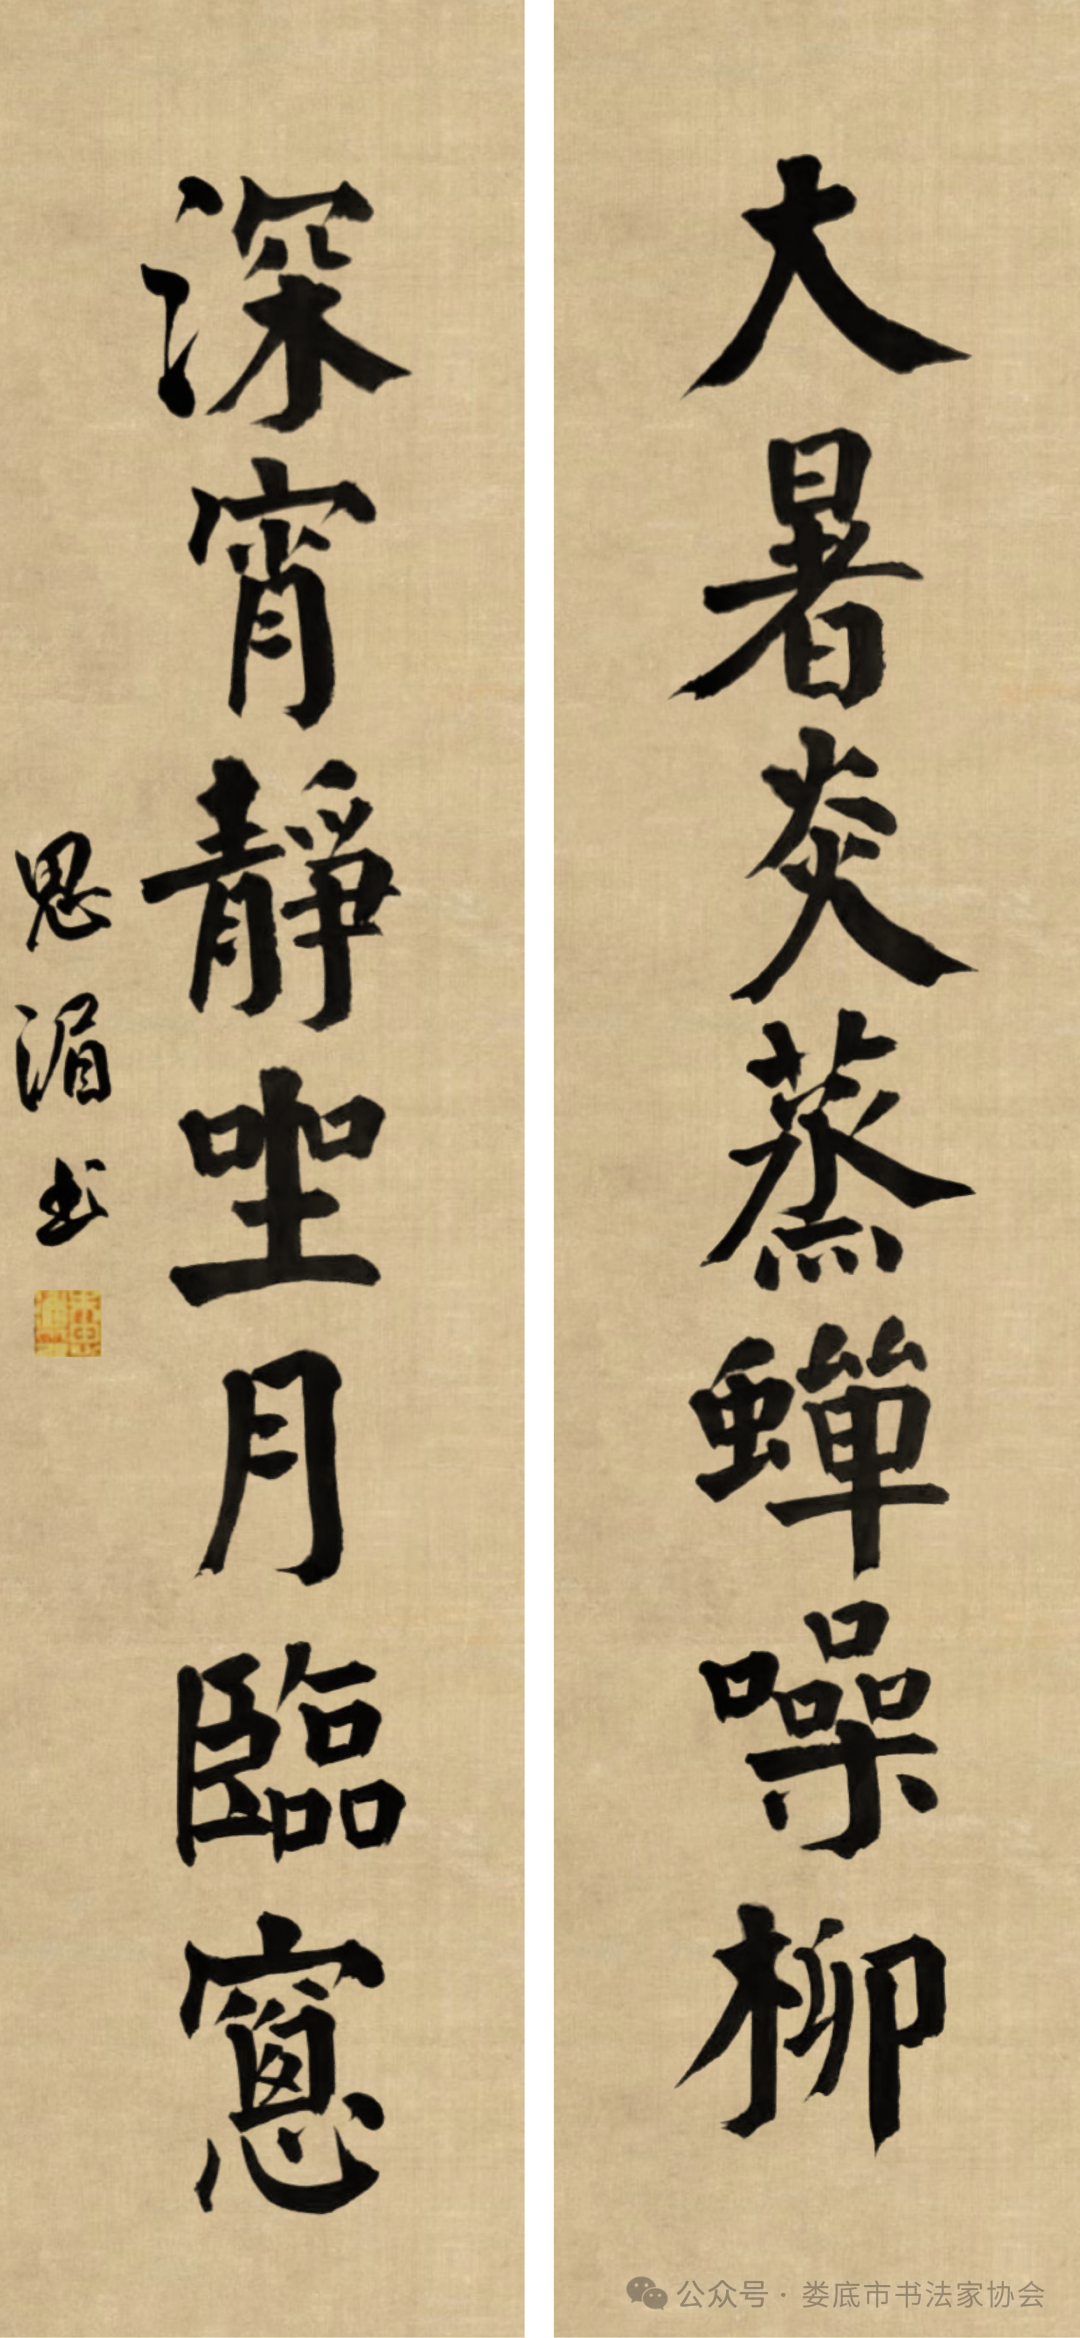 大暑炎蒸蟬噪柳
深宵靜坐月臨窻
思湄书
公众号·娄底市书法家协会